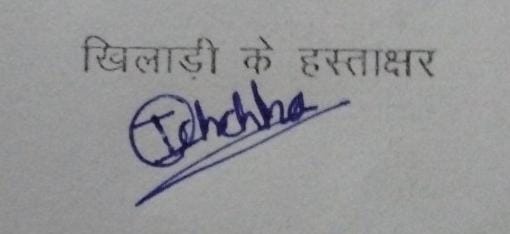 खिलाड़ी के हस्ताक्षर
Ichchha